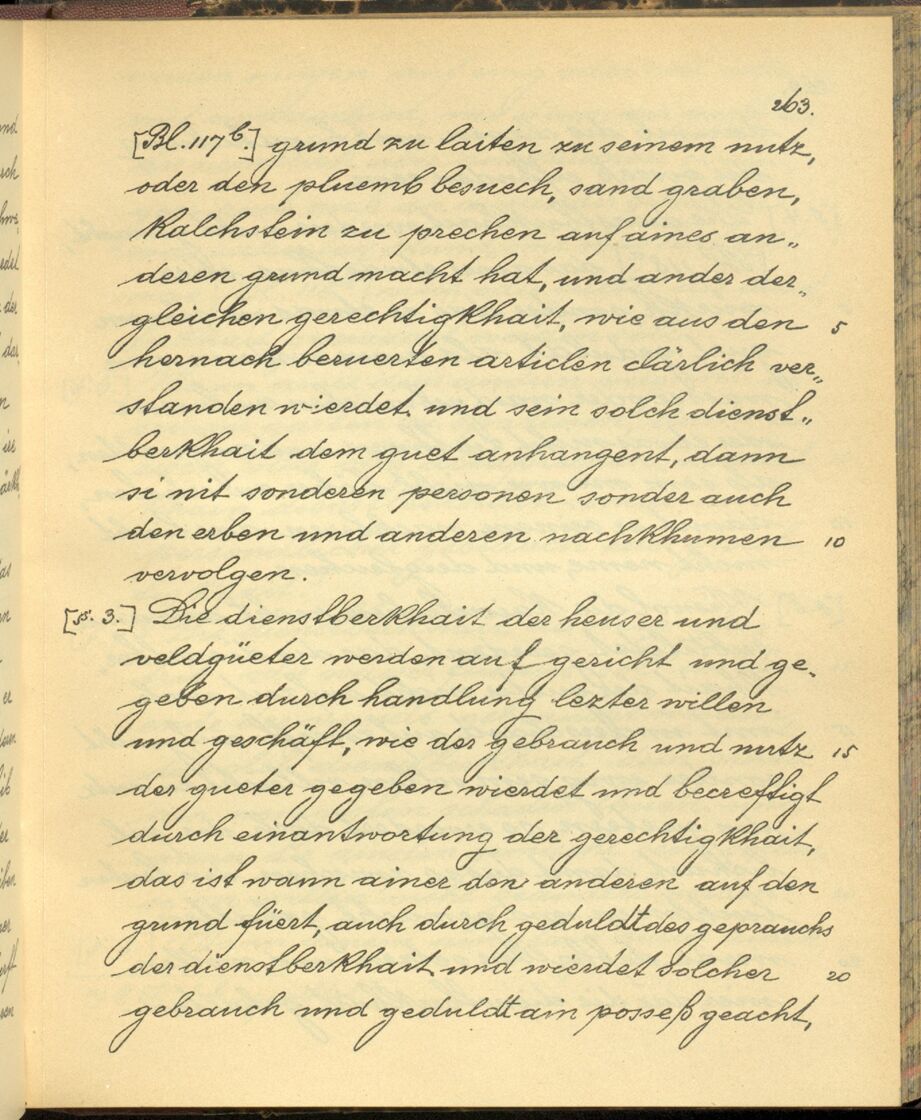 263.
[Bl. 117b.] grund zu laiten zu seinem nutz,
oder den pluemb besuech, sand graben,
Kalchstein zu prechen auf aines an„
deren grund macht hat, und ander der„
gleichen gerechtigkhait, wie aus den 5
hernach beruerten articlen clärlich ver„
standen wierdet. und sein solch dienst„
berkhait dem guet anhangent, dann
si nit sonderen personen sonder auch
den erben und anderen nachkhumen 10
vervolgen.
[§. 3.] Die dienstberkhait der heuser und
veldgüeter werden auf gericht und ge„
geben durch handlung lezter willen
und geschäft, wie der gebrauch und nutz 15
der gueter gegeben wierdet und becreftigt
durch einantwortung der gerechtigkhait,
das ist wann ainer den anderen auf den
grund füert, auch durch geduldt des geprauchs
der dienstberkhait und wierdet solcher 20
gebrauch und geduldt ain posseß geacht,